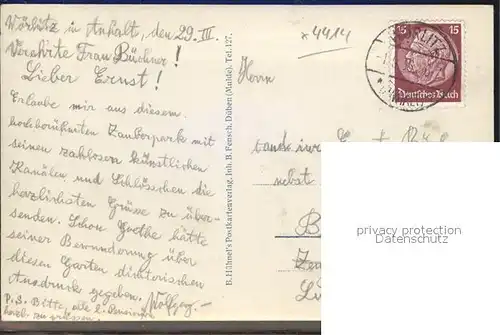 Wörlitz in Anhalt, den 29. III.
Verehrte Frau Büchner!
Lieber Ernst!
Erlaube mir aus diesem
hochberühmten Zauberpark mit
seinen zahllosen künstlichen
Kanälen und Schlösschen die
herzlichsten Grüsse zu über-
senden. Schon Goethe hätte
seiner Bewunderung über
diesen Garten dichterischen
Ausdruck gegeben. Wolfgang
P.S. Bitte, alle
herzl. zu grüssen.
B. Hühnel's Postkartenverlag, Inh. B. Fensch, Düben (Mulde). Tel. 127.
*4414
15 15
Deutsches Reich
Herrn
cand. ing.
nebst
B
privacy protection
Datenschutz